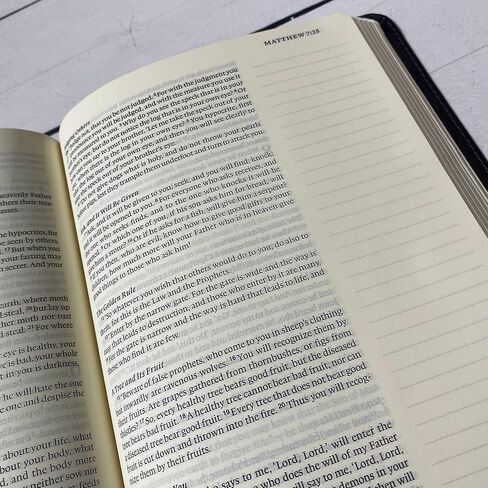 eavenly Father
others their tres-
asses.
the hypocrites, for
be seen by others.
But when you
t your fasting may
n secret. And your
earth, where moth
eal, but lay up
er moth nor rust
For where
eye is healthy, your
e is bad, your whole
in you is darkness,
he will hate the one
e one and despise the
about your life, what
about your body, what
and the body more
y neither sow nor
MATTHEW 7:25
ing Others
not, that you be not judged. 2 For with the judgment you
you will be judged, and with the measure you use it
measured to you. 3 Why do you see the speck that is in your
but do not notice the log that is in your own eye? 4 Or
you say to your brother, 'Let me take the speck out of your
there is the log in your own eye? 5 You hypocrite, first
the log out of your own eye, and then you will see clearly to
the speck out of your brother's eye.
not give dogs what is holy, and do not throw your pearls
pigs, lest they trample them underfoot and turn to attack you.
and It Will Be Given
and it will be given to you; seek, and you will find; knock,
it will be opened to you. 8 For everyone who asks receives, and
one who seeks finds, and to the one who knocks it will be
opened. 9 Or which one of you, if his son asks him for bread, will
him a stone? 10 Or if he asks for a fish, will give him a serpent?
If you then, who are evil, know how to give good gifts to your
children, how much more will your Father who is in heaven give
good things to those who ask him!
The Golden Rule
"So whatever you wish that others would do to you, do also to
them, for this is the Law and the Prophets.
"Enter by the narrow gate. For the gate is wide and the way is
easy that leads to destruction, and those who enter by it are many.
For the gate is narrow and the way is hard that leads to life, and
A Tree and Its Fruit
"Beware of false prophets, who come to you in sheep's clothing
but inwardly are ravenous wolves. 16 You will recognize them by
their fruits. Are grapes gathered from thornbushes, or figs from
thistles? 17 So, every healthy tree bears good fruit, but the diseased
tree bears bad fruit. 18 A healthy tree cannot bear bad fruit, nor can
a diseased tree bear good fruit. 19 Every tree that does not bear good
fruit is cut down and thrown into the fire. 20 Thus you will recog-
nize them by their fruits.
You
says to me, 'Lord, Lord,' will enter the
who does the will of my Father
will say to me, 'Lord, Lord,
demons in your